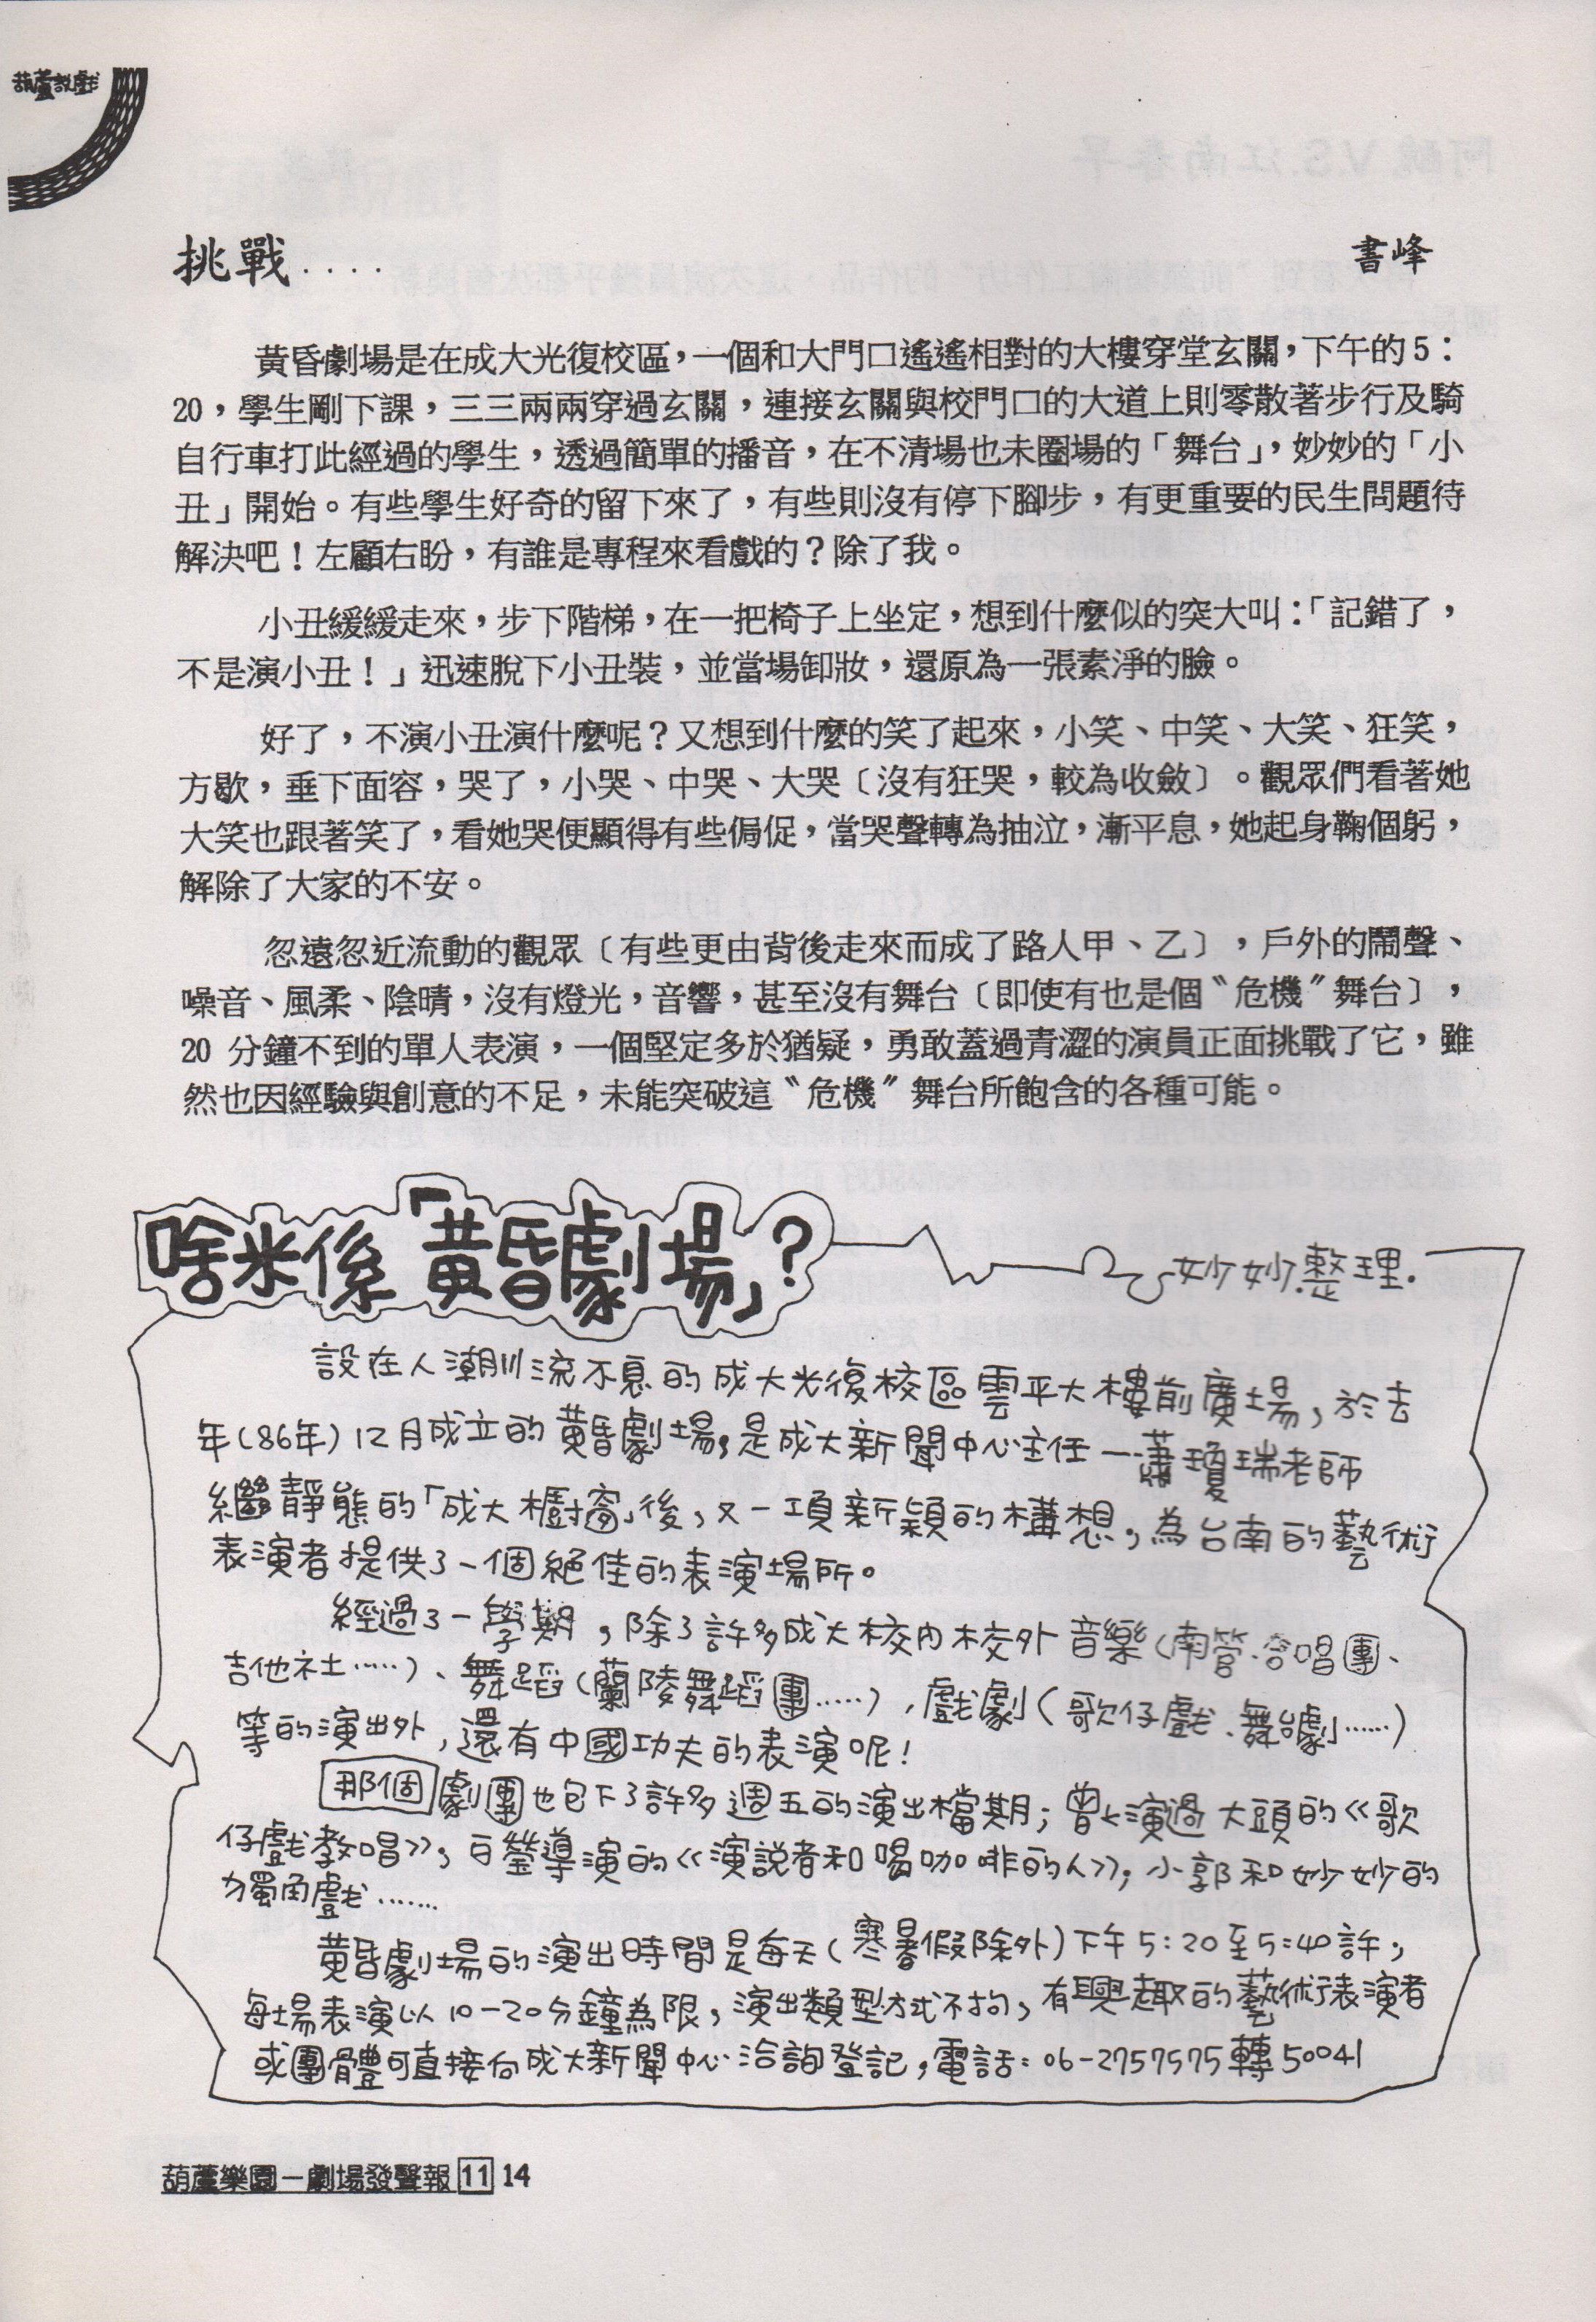 葫蘆說戲
挑戰‥‥
書峰
黃昏劇場是在成大光復校區，一個和大門口遙遙相對的大樓穿堂玄關，下午的5：
20，學生剛下課，三三兩兩穿過玄關，連接玄關與校門口的大道上則零散著步行及騎
自行車打此經過的學生，透過簡單的播音，在不清場也未圈場的「舞台」，妙妙的「小
丑」開始。有些學生好奇的留下來了，有些則沒有停下腳步，有更重要的民生問題待
解決吧！左顧右盼，有誰是專程來看戲的？除了我。
小丑緩緩走來，步下階梯，在一把椅子上坐定，想到什麼似的突大叫：「記錯了，
不是演小丑！」迅速脫下小丑裝，並當場卸妝，還原為一張素淨的臉。
好了，不演小丑演什麼呢？又想到什麼的笑了起來，小笑、中笑、大笑、狂笑，
方歇，垂下面容，哭了，小哭、中哭、大哭〔沒有狂哭，較為收斂〕。觀眾們看著她
大笑也跟著笑了，看她哭便顯得有些侷促，當哭聲轉為抽泣，漸平息，她起身鞠個躬，
解除了大家的不安。
忽遠忽近流動的觀眾〔有些更由背後走來而成了路人甲、乙〕，戶外的鬧聲、
噪音、風柔、陰晴，沒有燈光，音響，甚至沒有舞台〔即使有也是個〝危機〞舞台〕，
20 分鐘不到的單人表演，一個堅定多於猶疑，勇敢蓋過青澀的演員正面挑戰了它，雖
然也因經驗與創意的不足，未能突破這〝危機〞舞台所飽含的各種可能。
啥米係「黃昏劇場」？
妙妙.整理.
設在人潮川流不息的成大光復校區雲平大樓前廣場，於去
年(86年)12月成立的黃昏劇場，是成大新聞中心主任—蕭瓊瑞老師
繼靜態的「成大櫥窗」後，又一項新穎的構想，為台南的藝術
表演者提供了一個絕佳的表演場所。
經過了一學期，除了許多成大校內校外音樂(南管.合唱團、
吉他社……)、舞蹈(蘭陵舞蹈團……)，戲劇(歌仔戲.舞台劇……)
等的演出外，還有中國功夫的表演呢！
那個劇團也包下了許多週五的演出檔期；曾演過大頭的《歌
仔戲教唱》，白瑩導演的《演說者和喝咖啡的人》；小郭和妙妙的
獨角戲……
黃昏劇場的演出時間是每天(寒暑假除外)下午5:20至5:40許；
每場表演以10-20分鐘為限，演出類型方式不拘，有興趣的藝術表演者
或團體可直接向成大新聞中心洽詢登記，電話：06-2757575轉50041
葫蘆樂園－劇場發聲報 11 14